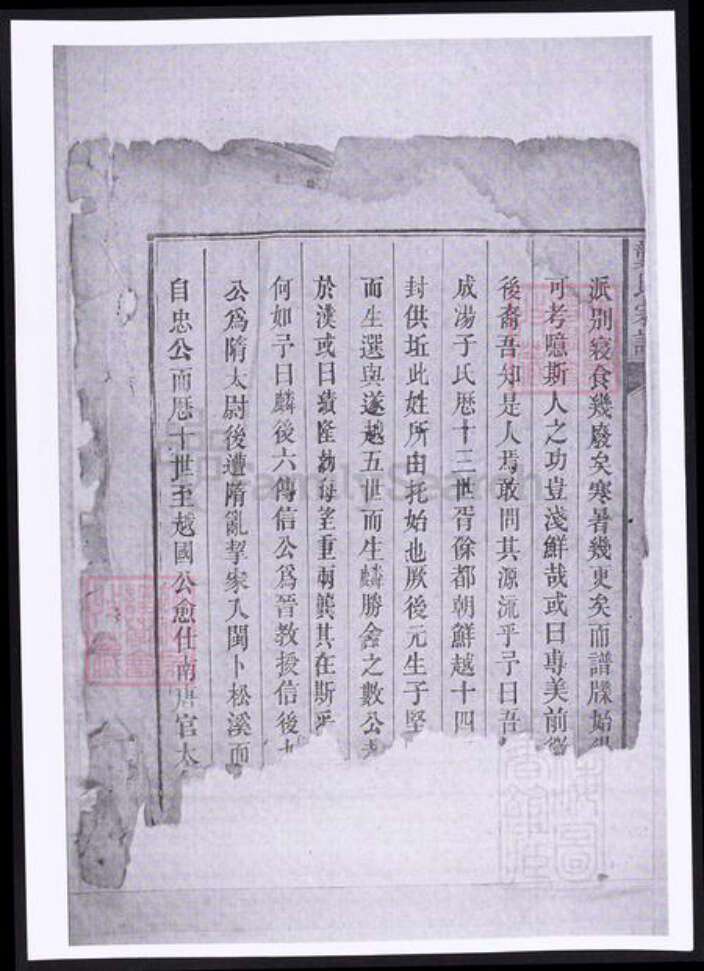 氏家譜
派別寢食幾廢矣寒暑幾更矣而譜牒始
可考噫斯人之功豈淺鮮哉或曰專美前
後裔吾知是人焉敢問其源流乎予曰吾
成湯子氏歷十三世胥餘都朝鮮越十四
封供坵此姓所由托始也厥後元生子堅
而生選與遂越五世而生麟勝舍之數公
於漢或曰績隆渤海望重兩龔其在斯乎
何如予曰麟後六傳信公爲晉教授信後
公爲隋太尉後遭隋亂挈家入閩卜松溪而
自忠公而歷十世至越國公愈仕南唐官太
FamilySearch